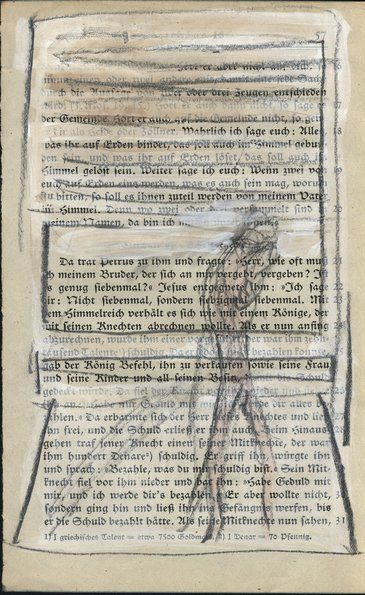 57
hört er aber nicht auf dich, so
nimm einen oder zwei andere mit, damit eine jede Sache
durch die Aussage von zwei oder drei Zeugen entschieden
der Gemeinde. Hört er auch auf die Gemeinde nicht, so gelte
er dir als Heide oder Zöllner. Wahrlich ich sage euch: Alles 18
was ihr auf Erden bindet, das soll auch im Himmel gebun-
den sein, und was ihr auf Erden löset, das soll auch im
Himmel gelöst sein. Weiter sage ich euch: Wenn zwei von 19
euch auf Erden eins werden, was es auch sein mag, worum
zu bitten, so soll es ihnen zuteil werden von meinem Vater
im Himmel. Denn wo zwei oder drei versammelt sind in 20
meinem Namen, da bin ich
Da trat Petrus zu ihm und fragte: »Herr, wie oft muß 21
ich meinem Bruder, der sich an mir vergeht, vergeben? Ist
es genug siebenmal?« Jesus entgegnete ihm: »Ich sage 22
dir: Nicht siebenmal, sondern siebzigmal siebenmal. Mit 23
dem Himmelreich verhält es sich wie mit einem Könige, der
mit seinen Knechten abrechnen wollte. Als er nun anfing 24
abzurechnen, wurde ihm einer vorgeführt, der war ihm zehn-
tausend Talente¹) schuldig. Da er nicht bezahlen konnte, 25
gab der König Befehl, ihn zu verkaufen sowie seine Frau
und seine Kinder und all seinen Besitz,
zahlen.‹ Da erbarmte sich der Herr dieses Knechtes und ließ 27
ihn frei, und die Schuld erließ er ihm auch. Beim Hinaus- 28
gehen traf jener Knecht einen seiner Mitknechte, der war
ihm hundert Denare²) schuldig. Er griff ihn, würgte ihn
und sprach: ›Bezahle, was du mir schuldig bist.‹ Sein Mit- 29
knecht fiel vor ihm nieder und bat ihn: ›Habe Geduld mit
mir, und ich werde dir's bezahlen.‹ Er aber wollte nicht, 30
sondern ging hin und ließ ihn ins Gefängnis werfen, bis
er die Schuld bezahlt hätte. Als seine Mitknechte nun sahen, 31
1) 1 griechisches Talent = etwa 7500 Goldmark. 2) 1 Denar = 70 Pfennig.